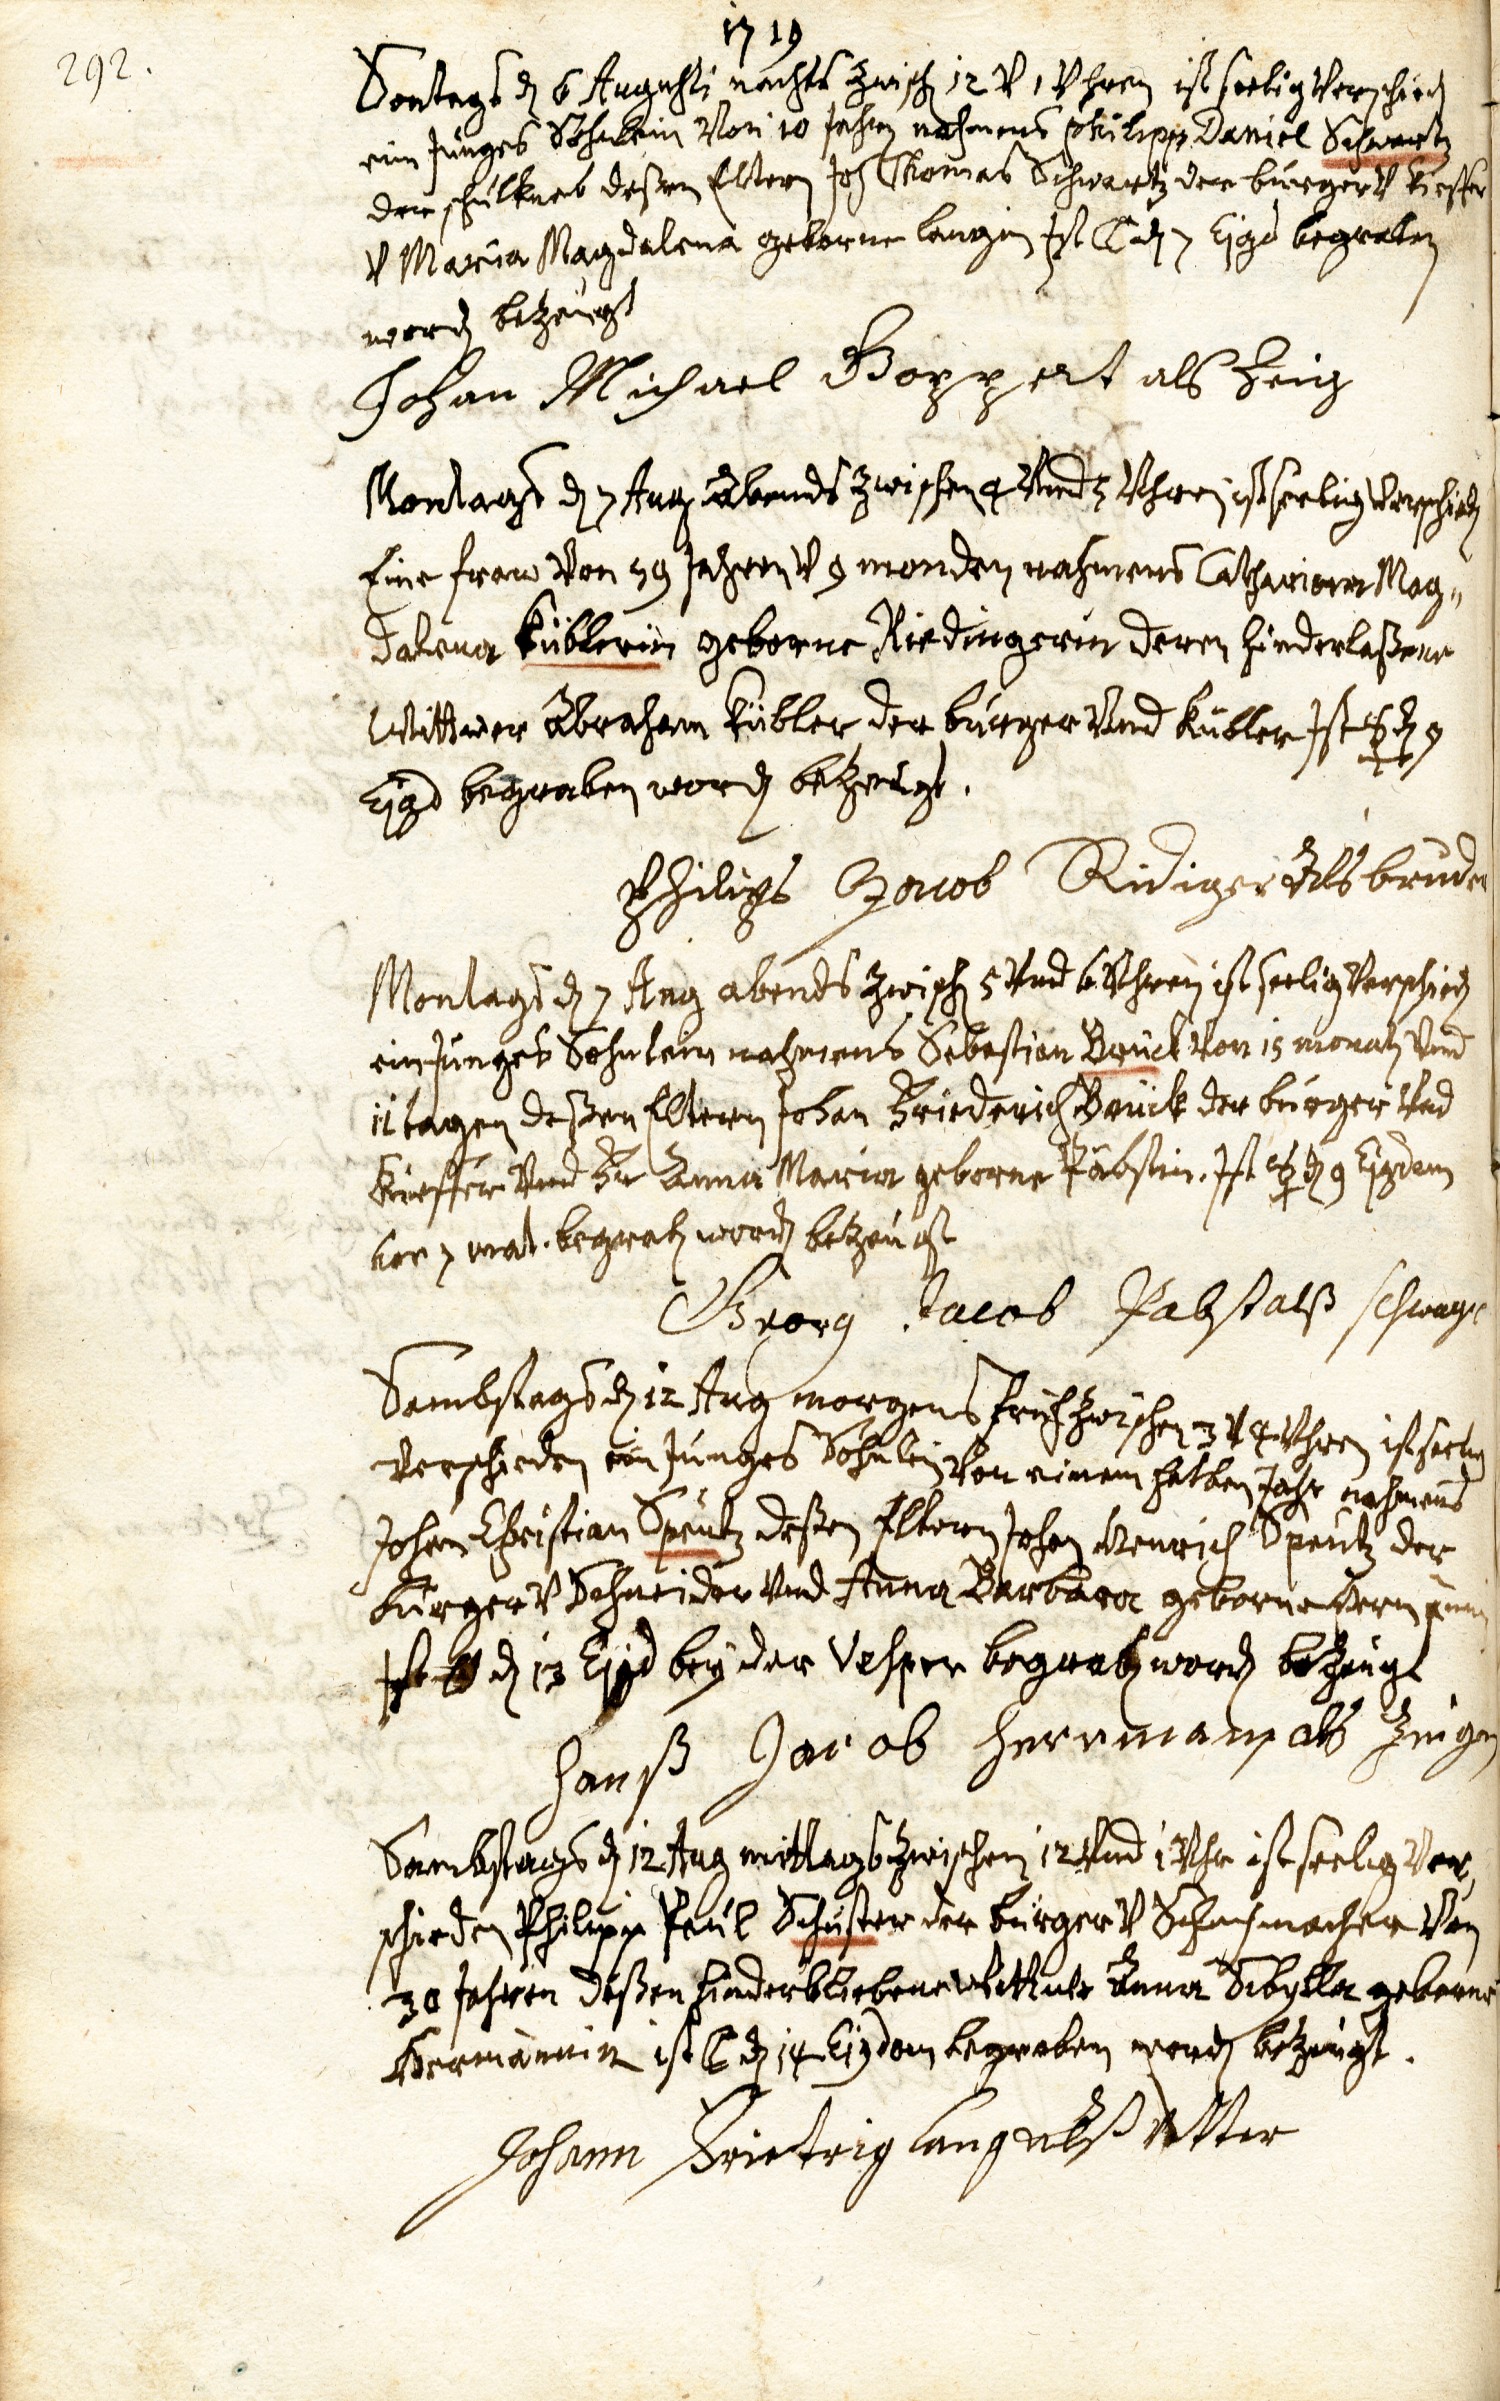 1719
292.
Sontags d 6 Augusti nachts zwisch 12 V 1 Vhren ist seelig Verschied
ein Junges Söhnlein Von 10 Jahren nahmens Philipp Daniel Schwartz
der schulknab deßen Eltern Joh Thomas Schwartz der burger V kieffer
V Maria Magdalena geborne Langin Ist ☾ d 7 Ejgd begraben
word betzeugt
Johan Michael Boppert als Zeig
Montags d 7 Aug Abends zwischen 4 Vnd 5 Vhren ist seelig Verschied
Eine fraw Von 59 Jahren V 9 monden nahmens Catharina Mag„
dalena Küblerin geborne Riedingerin deren hinderlaßene
Wittwer Abraham Kübler der burger Vnd Kübler Ist ☿ d 9
Ejgd begraben word betzeugt.
Philips Jacob Ridiger Als bruder
Montags d 7 Aug abends zwisch 5 Vnd 6 Vhren ist seelig Verschied
ein Junges Sohnlein nahmens Sebastian Brück Von 15 monath Vnd
11 tagen deßen Eltern Johan Friederich Brück der burger Vnd
Kieffer Vnd Fr Anna Maria geborne Päbstin. Ist ☿ d 9 Ejgdem
begrab word betzeugt
Georg Jacob Pabst alß schwager
Sambstags d 12 Aug morgens früh zwischen 3 V 4 Vhren ist seelig
Verschieden ein Junges Söhnlein Von einem halben Jahr nahmens
Johan Christian Speutz deßen Eltern Johan Henrich Speutz der
burger V Schneider Vnd Anna Barbara geborne
Ist d 13 Ejgd bey der Vesper begrab word betzeugt
Hanß Jacob Herrman als Zeigen
Sambstags d 12 Aug mittags zwischen 12 Vnd 1 Vhr ist seelig Ver,
schieden Philipp Paul Schuster der burger V Schuhmacher Von
30 Jahren deßen hinderbliebene Wittwe Anna Sibylla geborne
Hermännin ist ☾ d 14 Ejgdem begraben word betzeugt.
Johann Frietrig Lang alß Vetter